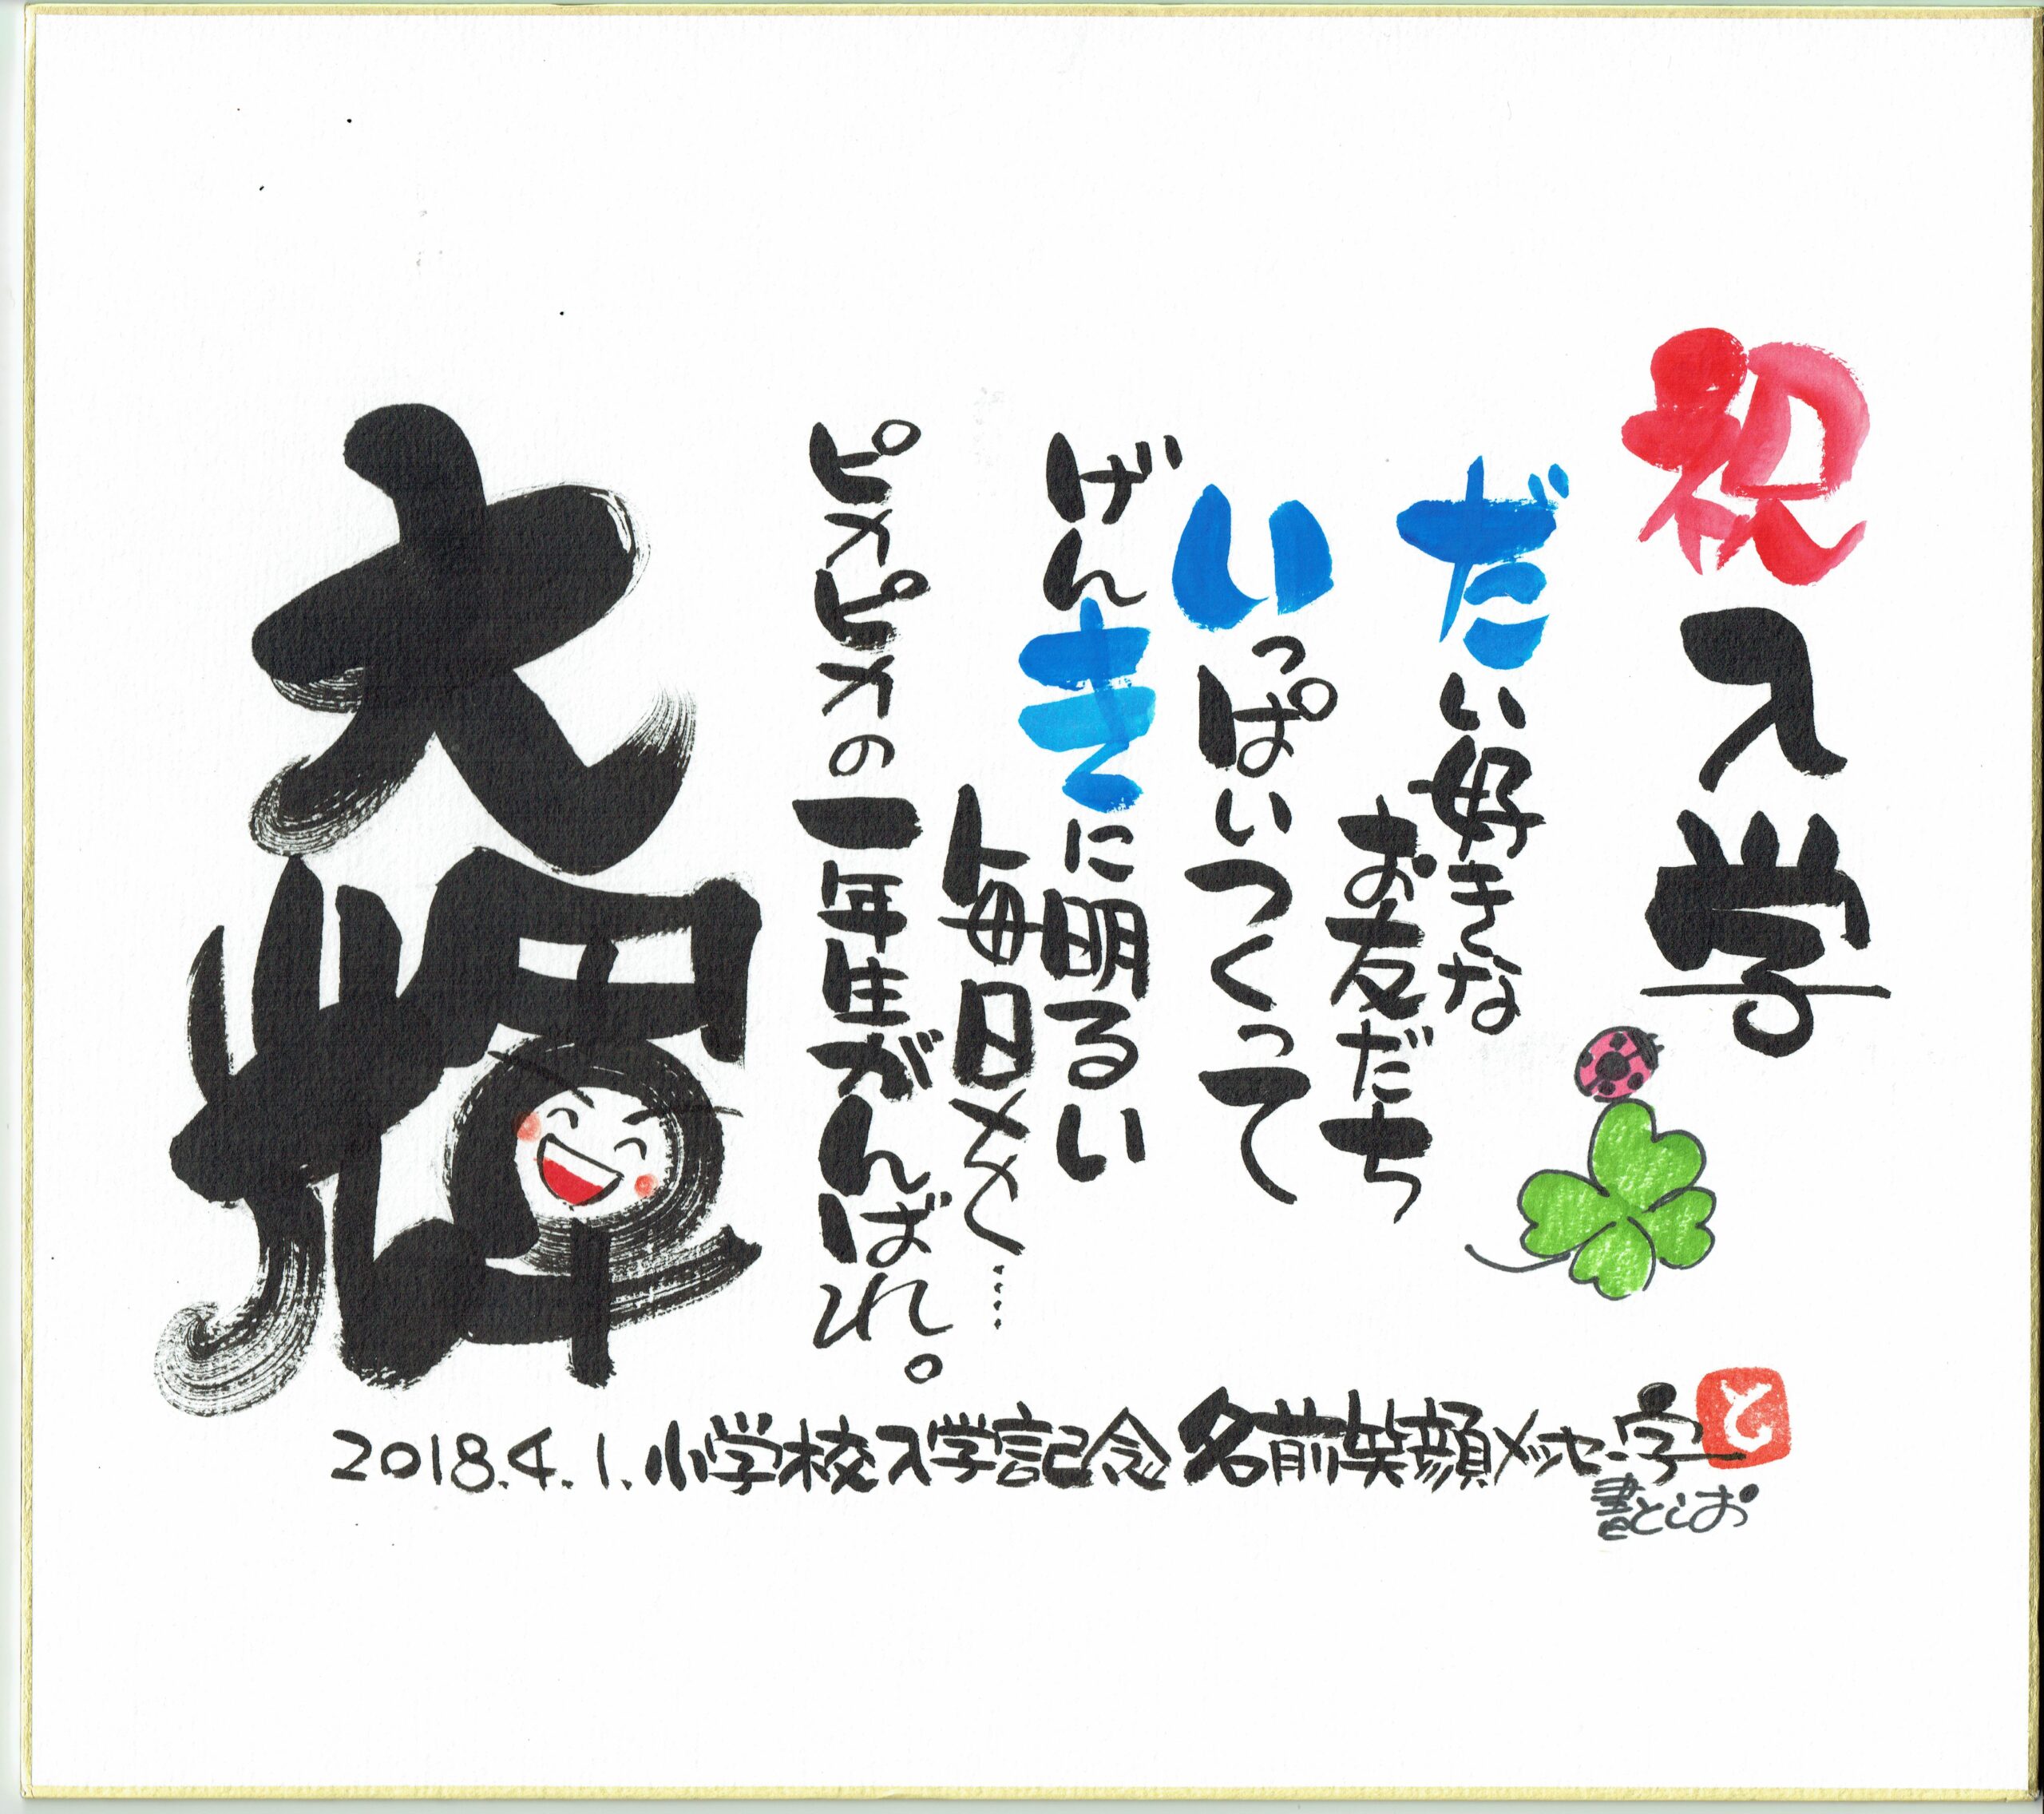 祝入学
だい好きな
お友だち
いっぱいつくって
げんきに明るい
毎日を…
ピカピカの一年生がんばれ。
大輝
2018.4.1.小学校入学記念 名前笑顔メッセー字
と
書としお